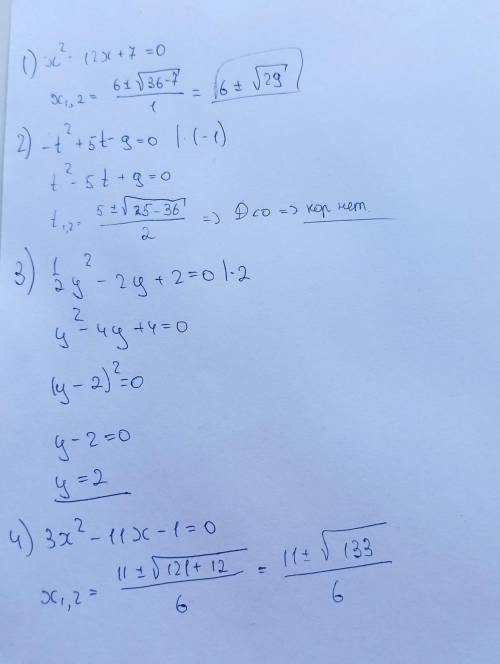 1) x² - 12x + 7 = 0
x₁,₂ = (6 ± √(36-7))/1 = 6 ± √29
2) -t² + 5t - 9 = 0 | ·(-1)
t² - 5t + 9 = 0
t₁,₂ = (5 ± √(25-36))/2 => D<0 => кор нет.
3) 1/2 y² - 2y + 2 = 0 | ·2
y² - 4y + 4 = 0
(y - 2)² = 0
y - 2 = 0
y = 2
4) 3x² - 11x - 1 = 0
x₁,₂ = (11 ± √(121+12))/6 = (11 ± √133)/6